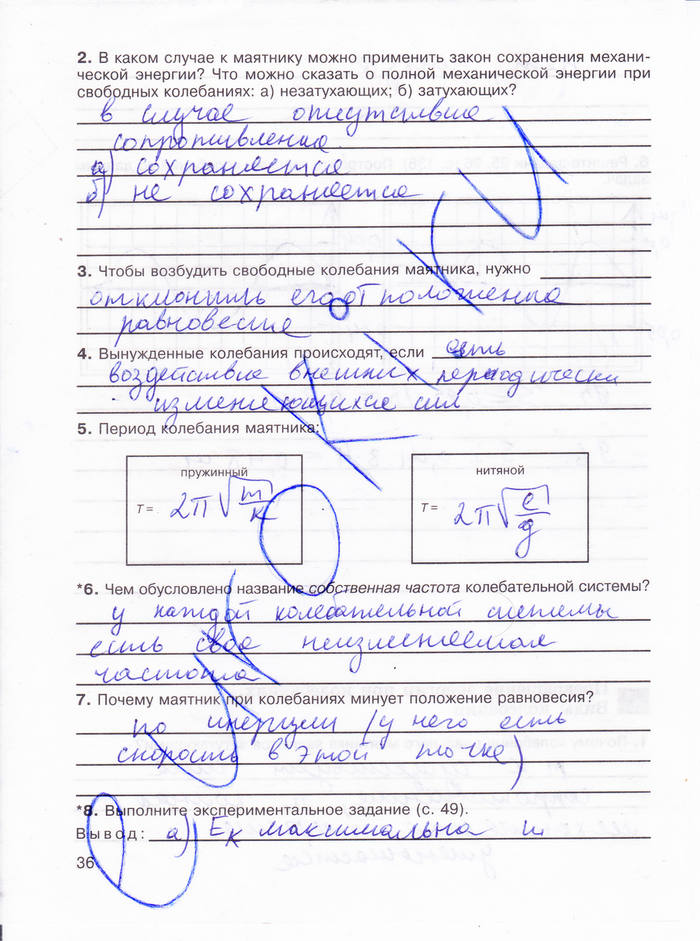 2. В каком случае к маятнику можно применить закон сохранения механи-
ческой энергии? Что можно сказать о полной механической энергии при
свободных колебаниях: а) незатухающих; б) затухающих?
в случае отсутствия
сопротивления
а) сохраняется
б) не сохраняется
3. Чтобы возбудить свободные колебания маятника, нужно
отклонить его от положения
равновесия
4. Вынужденные колебания происходят, если есть
воздействие внешних периодически
изменяющихся сил
5. Период колебания маятника:
пружинный
T = 2π√m/k
нитяной
T = 2π√l/g
*6. Чем обусловлено название собственная частота колебательной системы?
у каждой колебательной системы
есть своя неизменяемая
частота
7. Почему маятник при колебаниях минует положение равновесия?
по инерции (у него есть
скорость в этой точке)
*8. Выполните экспериментальное задание (с. 49).
Вывод: а) Eк максимальна и
36